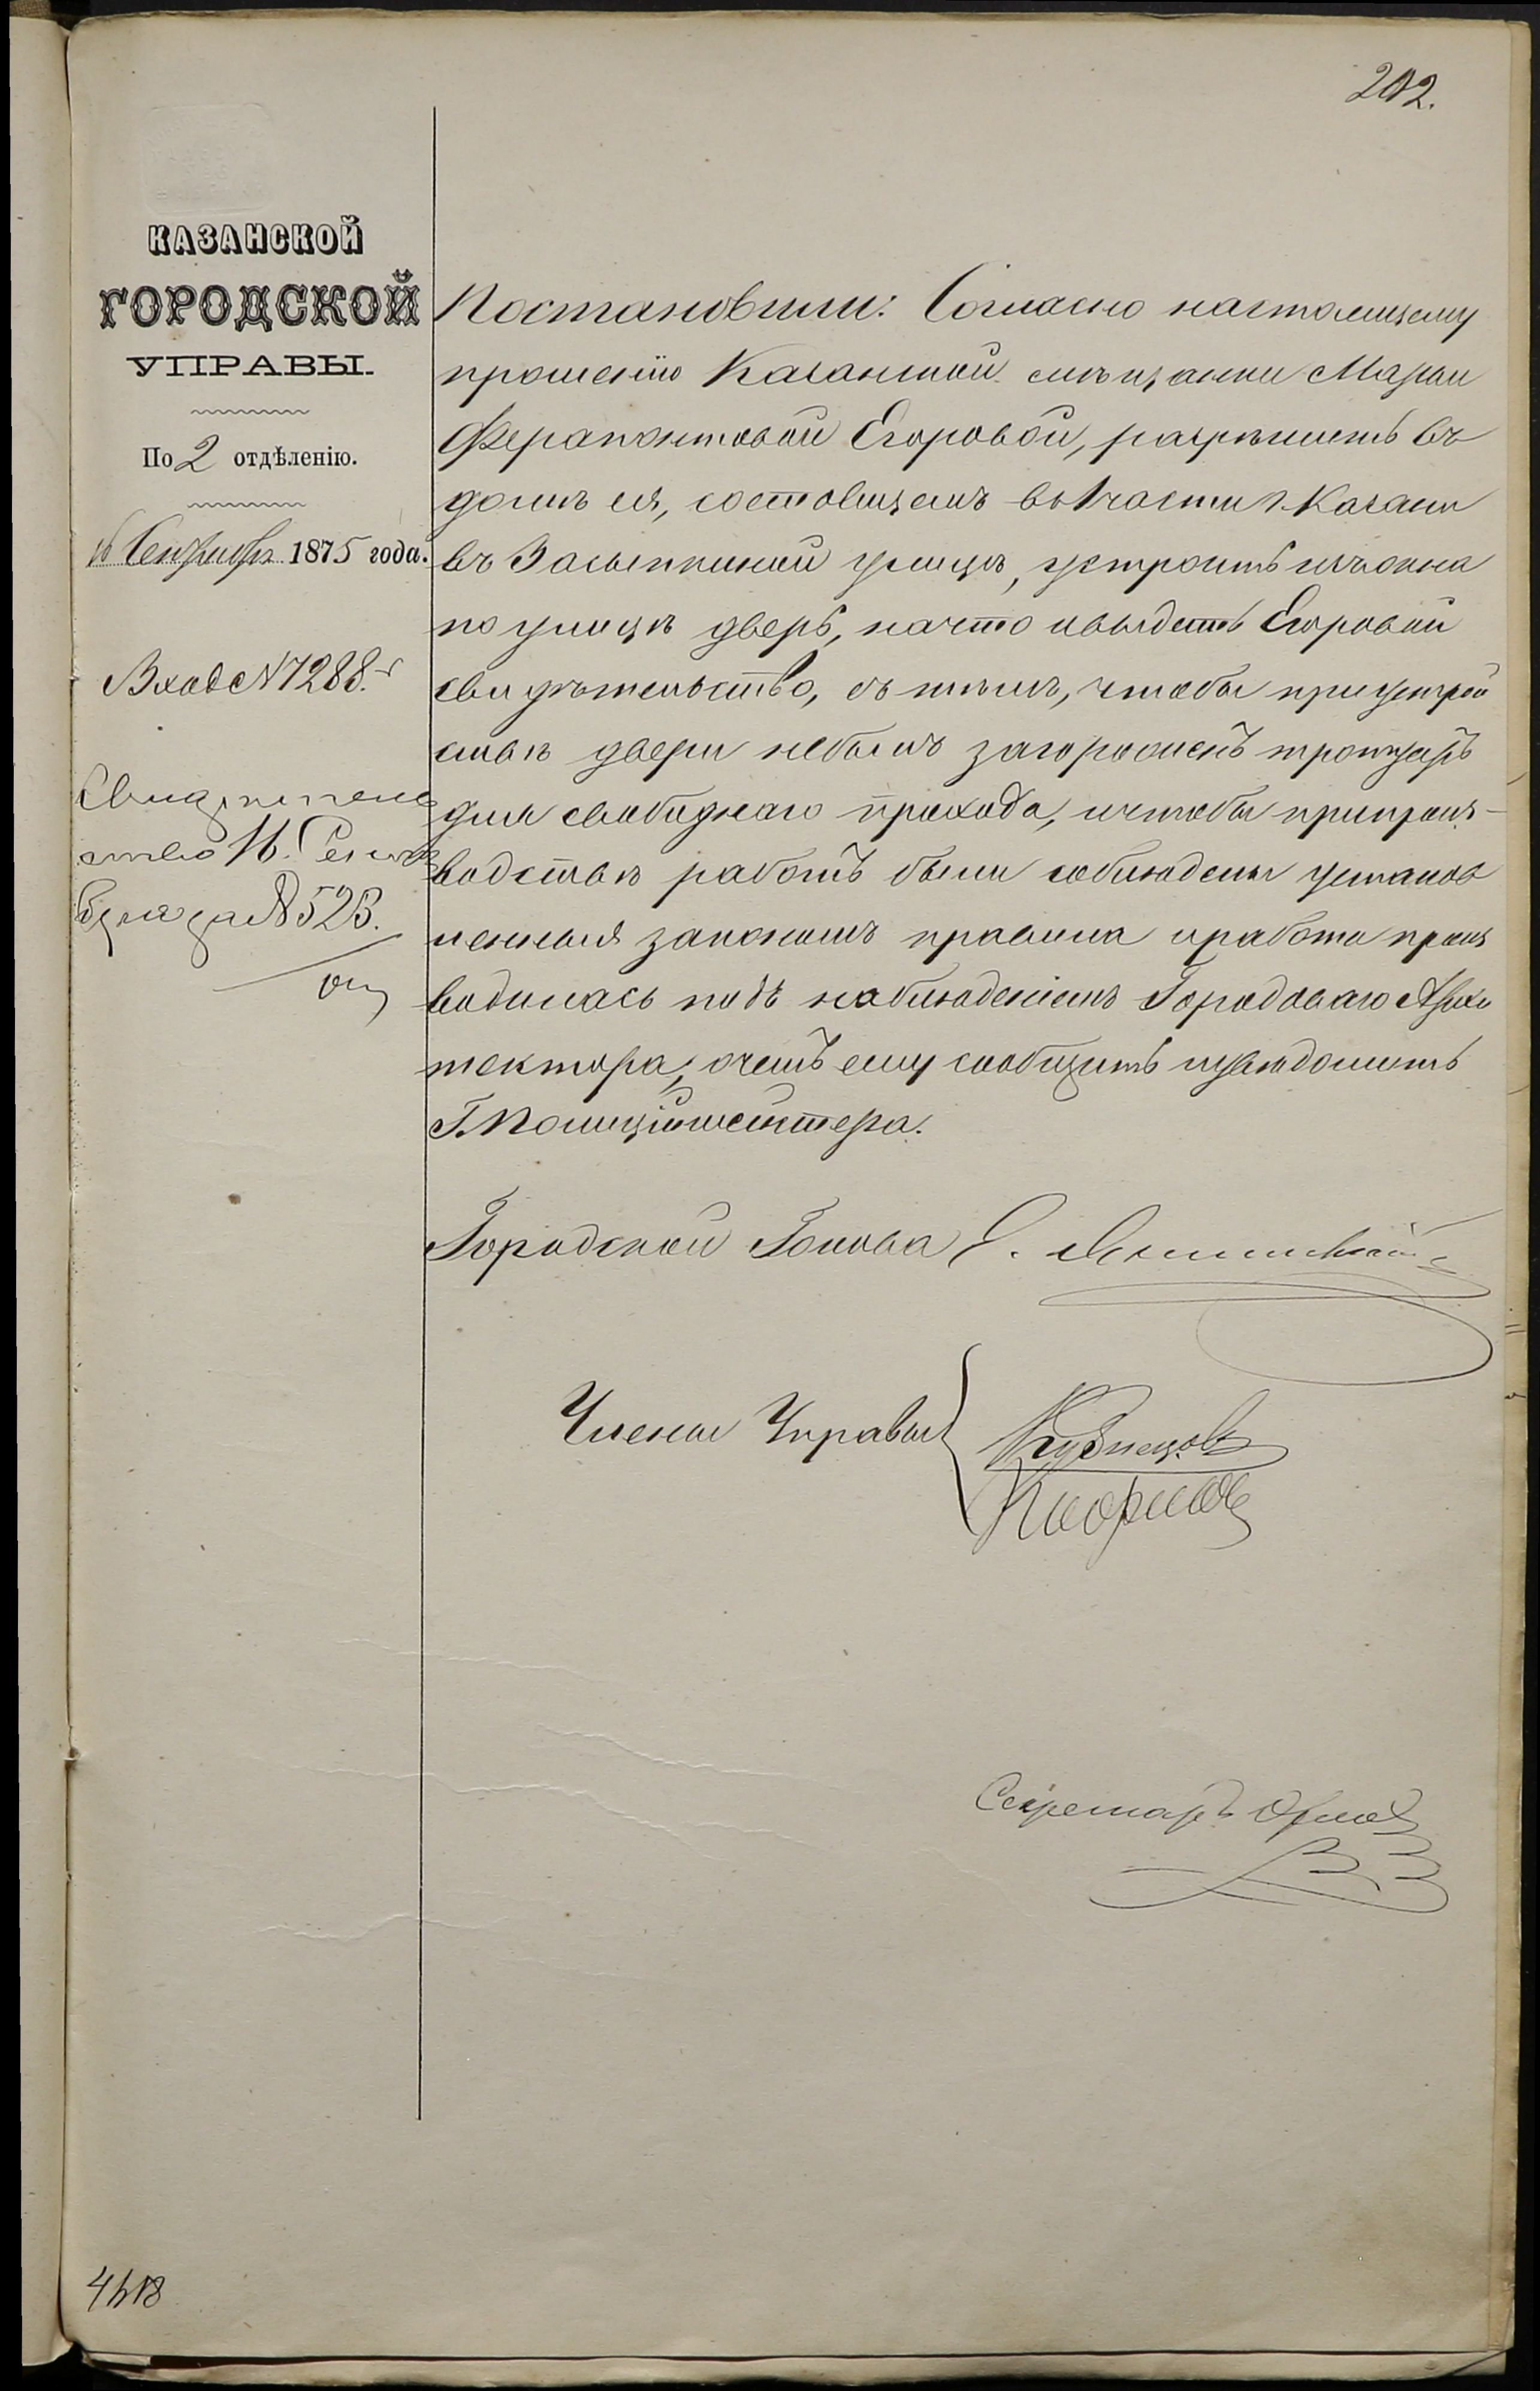 202.
КАЗАНСКОЙ
ГОРОДСКОЙ
УПРАВЫ.
По 2 отдѣленію.
16 Сентября 1875 года.
Вход №7288.
Свидѣтель
ство 16. Сентя
бря за №523.
Постановили: Согласно настоящему
прошенію Казанской мѣщанки Марьи
Ферапонтовой Егоровой, разрѣшить въ
домѣ ея, состоящемъ во 1 части г. Казани
въ Засыпкиной улицѣ, устроить изъ окна
по улицѣ дверь, на что и выдать Егоровой
свидѣтельство, съ тѣмъ, чтобы при устрой
ствѣ двери не былъ загороженъ тротуаръ
для свободнаго прохода, и чтобы при произ-
водствѣ работъ были соблюдены установ
ленныя закономъ правила и работа произ
водилась подъ наблюденіемъ Городоваго Архи
тектора, о чемъ ему сообщить и увѣдомить
Г. Полиціймейстера.
Городской Голова Э. Янишевскій
Члены Управы
Кузнецовъ
Секретарь Орлов
4518